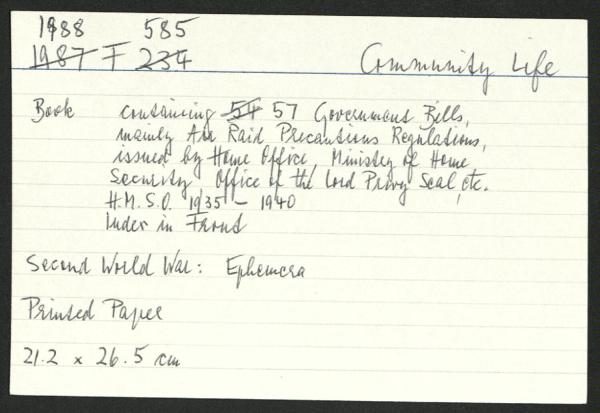 1988 585
1987 F 234 Community Life
Book containing 54 57 Government Bills,
namely Air Raid Precautions Regulations,
issued by Home Office, Ministry of Home
Security, Office of the Lord Privy Seal, etc.
H.M.S.O. 1935 – 1940
Index in Front
Second World War: Ephemera
Printed Paper
21.2 x 26.5 cm